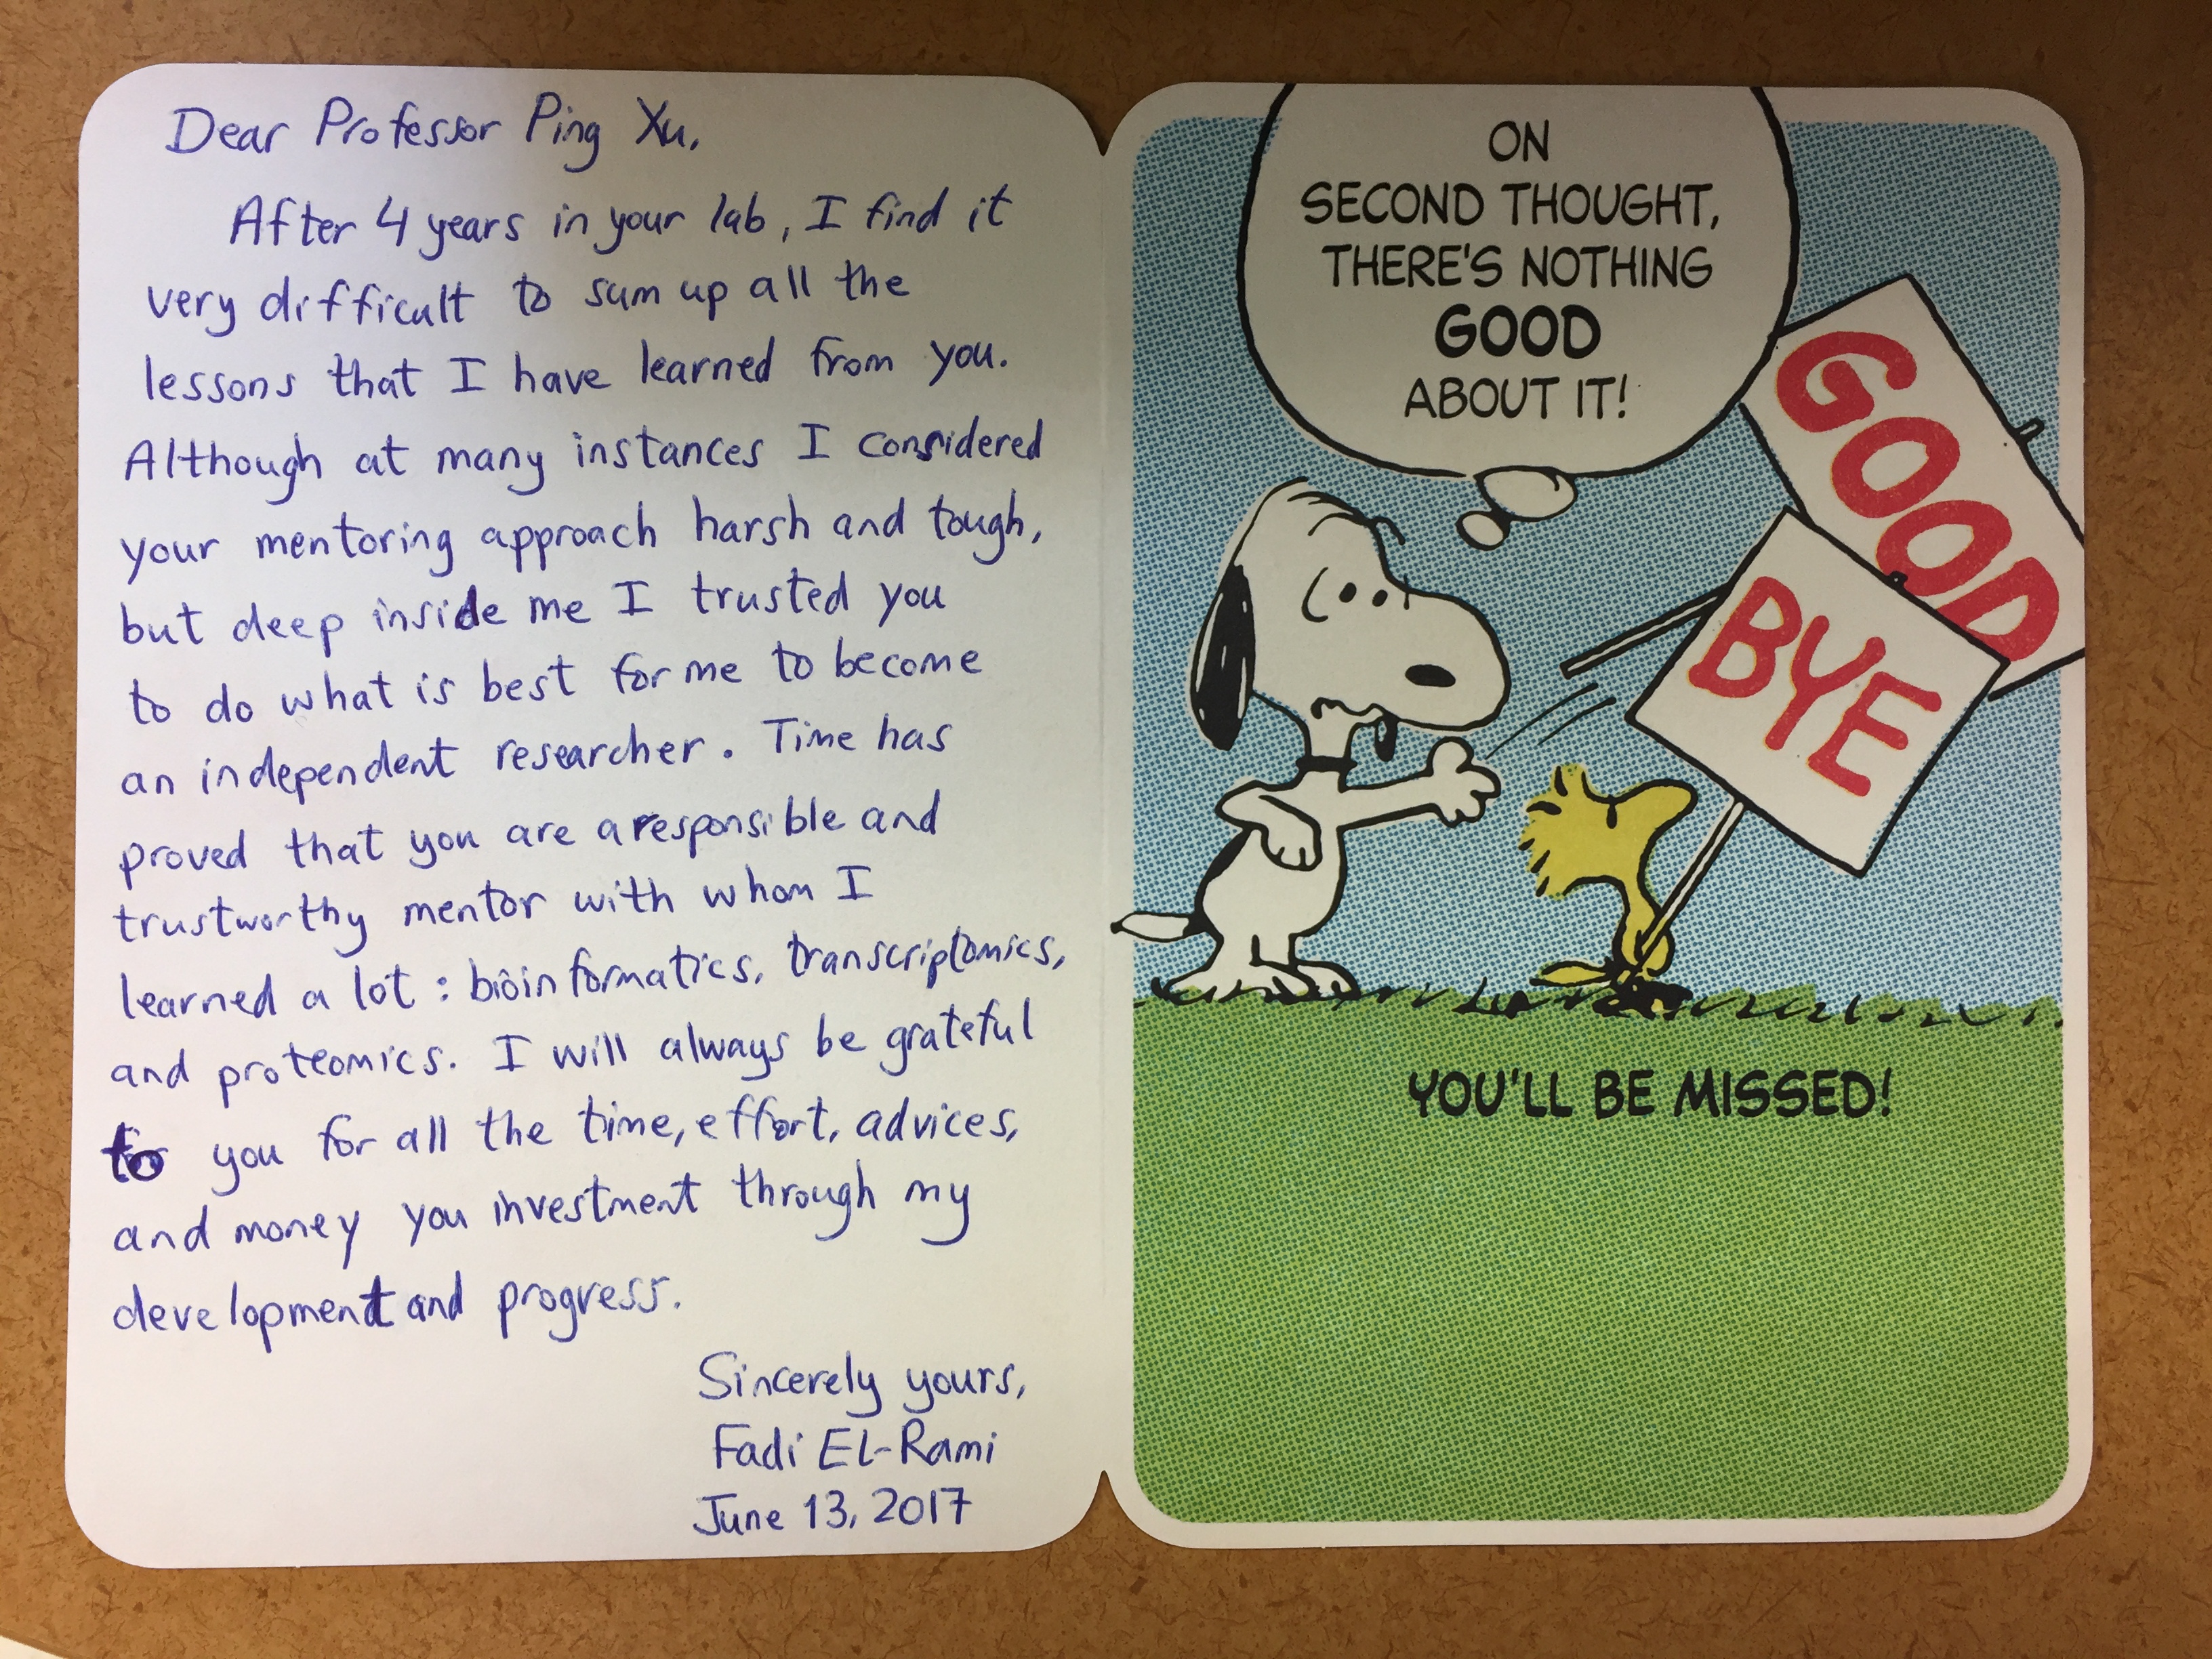 Dear Professor Ping Xu,
After 4 years in your lab, I find it
very difficult to sum up all the
lessons that I have learned from you.
Although at many instances I considered
your mentoring approach harsh and tough,
but deep inside me I trusted you
to do what is best for me to become
an independent researcher. Time has
proved that you are a responsible and
trustworthy mentor with whom I
learned a lot: bioinformatics, transcriptomics,
and proteomics. I will always be grateful
to you for all the time, effort, advices,
and money you investment through my
development and progress.
Sincerely yours,
Fadi El-Rami
June 13, 2017
ON
SECOND THOUGHT,
THERE'S NOTHING
GOOD
ABOUT IT!
GOOD
BYE
YOU'LL BE MISSED!